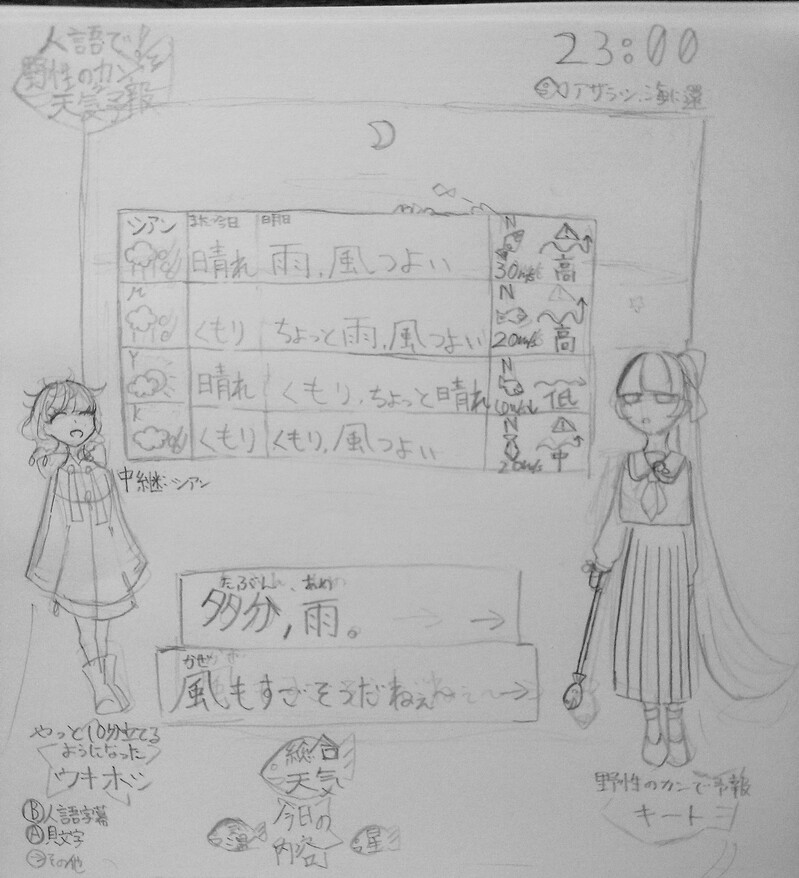 人語で!
野性のカン
天気予報
23:00
アザラシ、海に還
シアン
また今日
明日
晴れ
雨、風つよい
N
30m/s
高
M
くもり
ちょっと雨、風つよい
N
20m/s
高
Y
晴れ
くもり、ちょっと晴れ
N
低
K
くもり
くもり、風つよい
N
20m/s
中
中継:シアン
たぶん、あめ
多分,雨。 →
かぜ
風もすごそうだねぇ →
やっと10分立てる
ようになった
ウキホシ
Ⓑ人語字幕
Ⓐ貝文字
その他
総合
天気
今日の
内容
温
星
野性のカンで予報
キートヨ